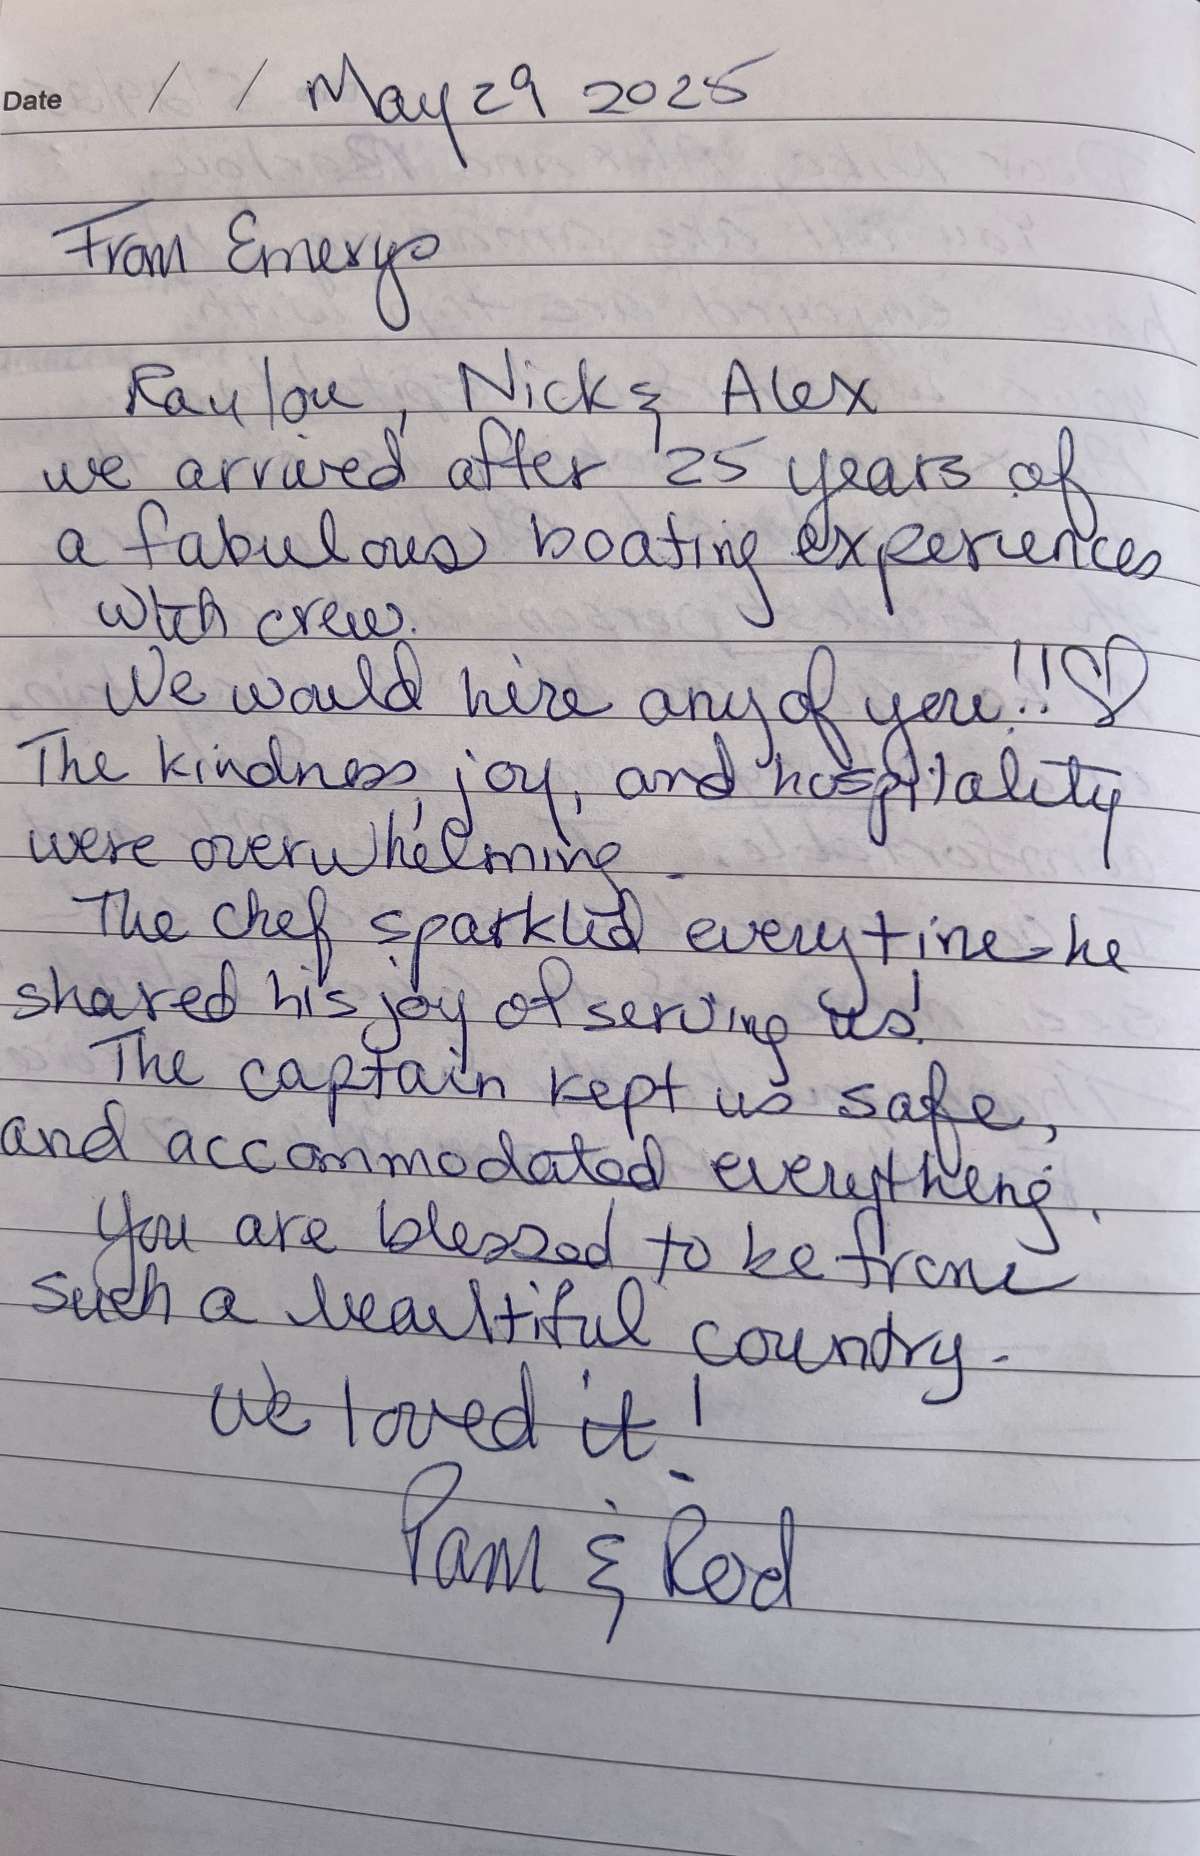 Date / / May 29 2025
From Emerys
Raylou, Nick & Alex
we arrived after 25 years of
a fabulous boating experiences
with crew.
We would hire any of you!!♡
The kindness, joy, and hospitality
were overwhelming.
The chef sparkled everytime he
shared his joy of serving us!
The captain kept us safe,
and accommodated everything.
You are blessed to be from
such a beautiful country.
We loved it!
Pam & Rod